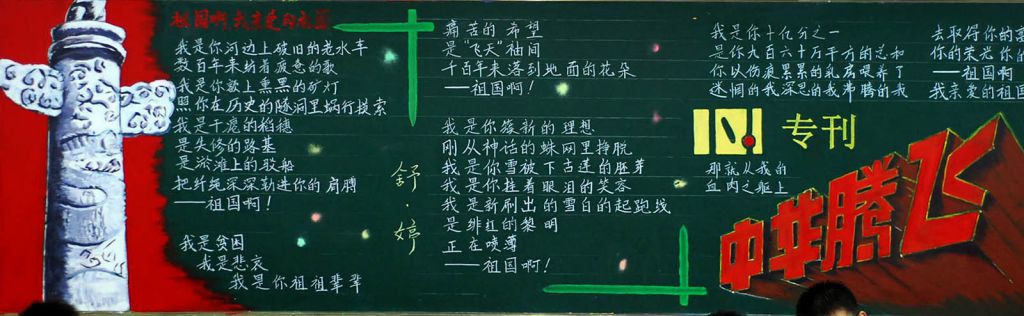 祖国啊我亲爱的祖国
我是你河边上破旧的老水车
数百年来纺着疲惫的歌
我是你额上熏黑的矿灯
照你在历史的隧洞里蜗行摸索
我是干瘪的稻穗
是失修的路基
是淤滩上的驳船
把纤绳深深勒进你的肩膊
——祖国啊！
我是贫困
我是悲哀
我是你祖祖辈辈
舒·婷
痛苦的希望
是“飞天”袖间
千百年来落到地面的花朵
——祖国啊！
我是你簇新的理想
刚从神话的蛛网里挣脱
我是你雪被下古莲的胚芽
我是你挂着眼泪的笑容
我是新刷出的雪白的起跑线
是绯红的黎明
正在喷薄
——祖国啊！
我是你十亿分之一
是你九百六十万平方的总和
你以伤痕累累的乳房喂养了
迷惘的我深思的我沸腾的我
10.1 专刊
那就从我的
血肉之躯上
去取得你的
你的荣光 你的
——祖国啊
我亲爱的祖国
中华腾飞